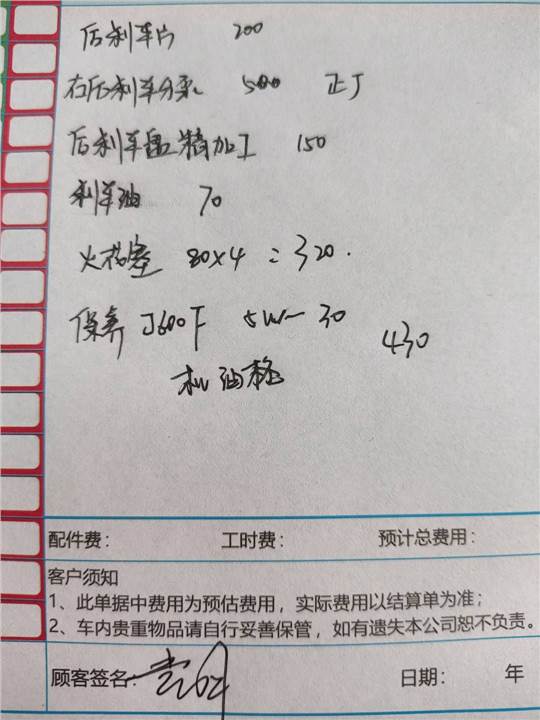 后刹车片 200
右后刹车分泵 500 正厂
后刹车盘精加工 150
刹车油 70
火花塞 80×4 = 320.
保养 J600F 5W-30 430
机油格
配件费： 工时费： 预计总费用：
客户须知
1、此单据中费用为预估费用，实际费用以结算单为准；
2、车内贵重物品请自行妥善保管，如有遗失本公司恕不负责。
顾客签名： 日期： 年